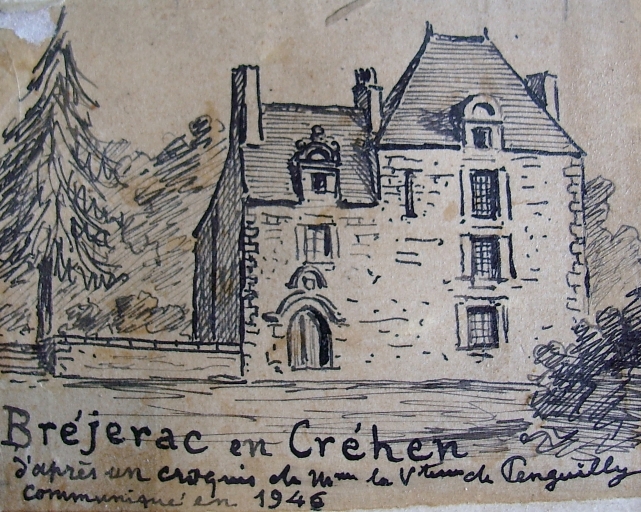 Bréjerac en Créhen
d'après un croquis de Mme la Vtesse de Penguilly
communiqué en 1946